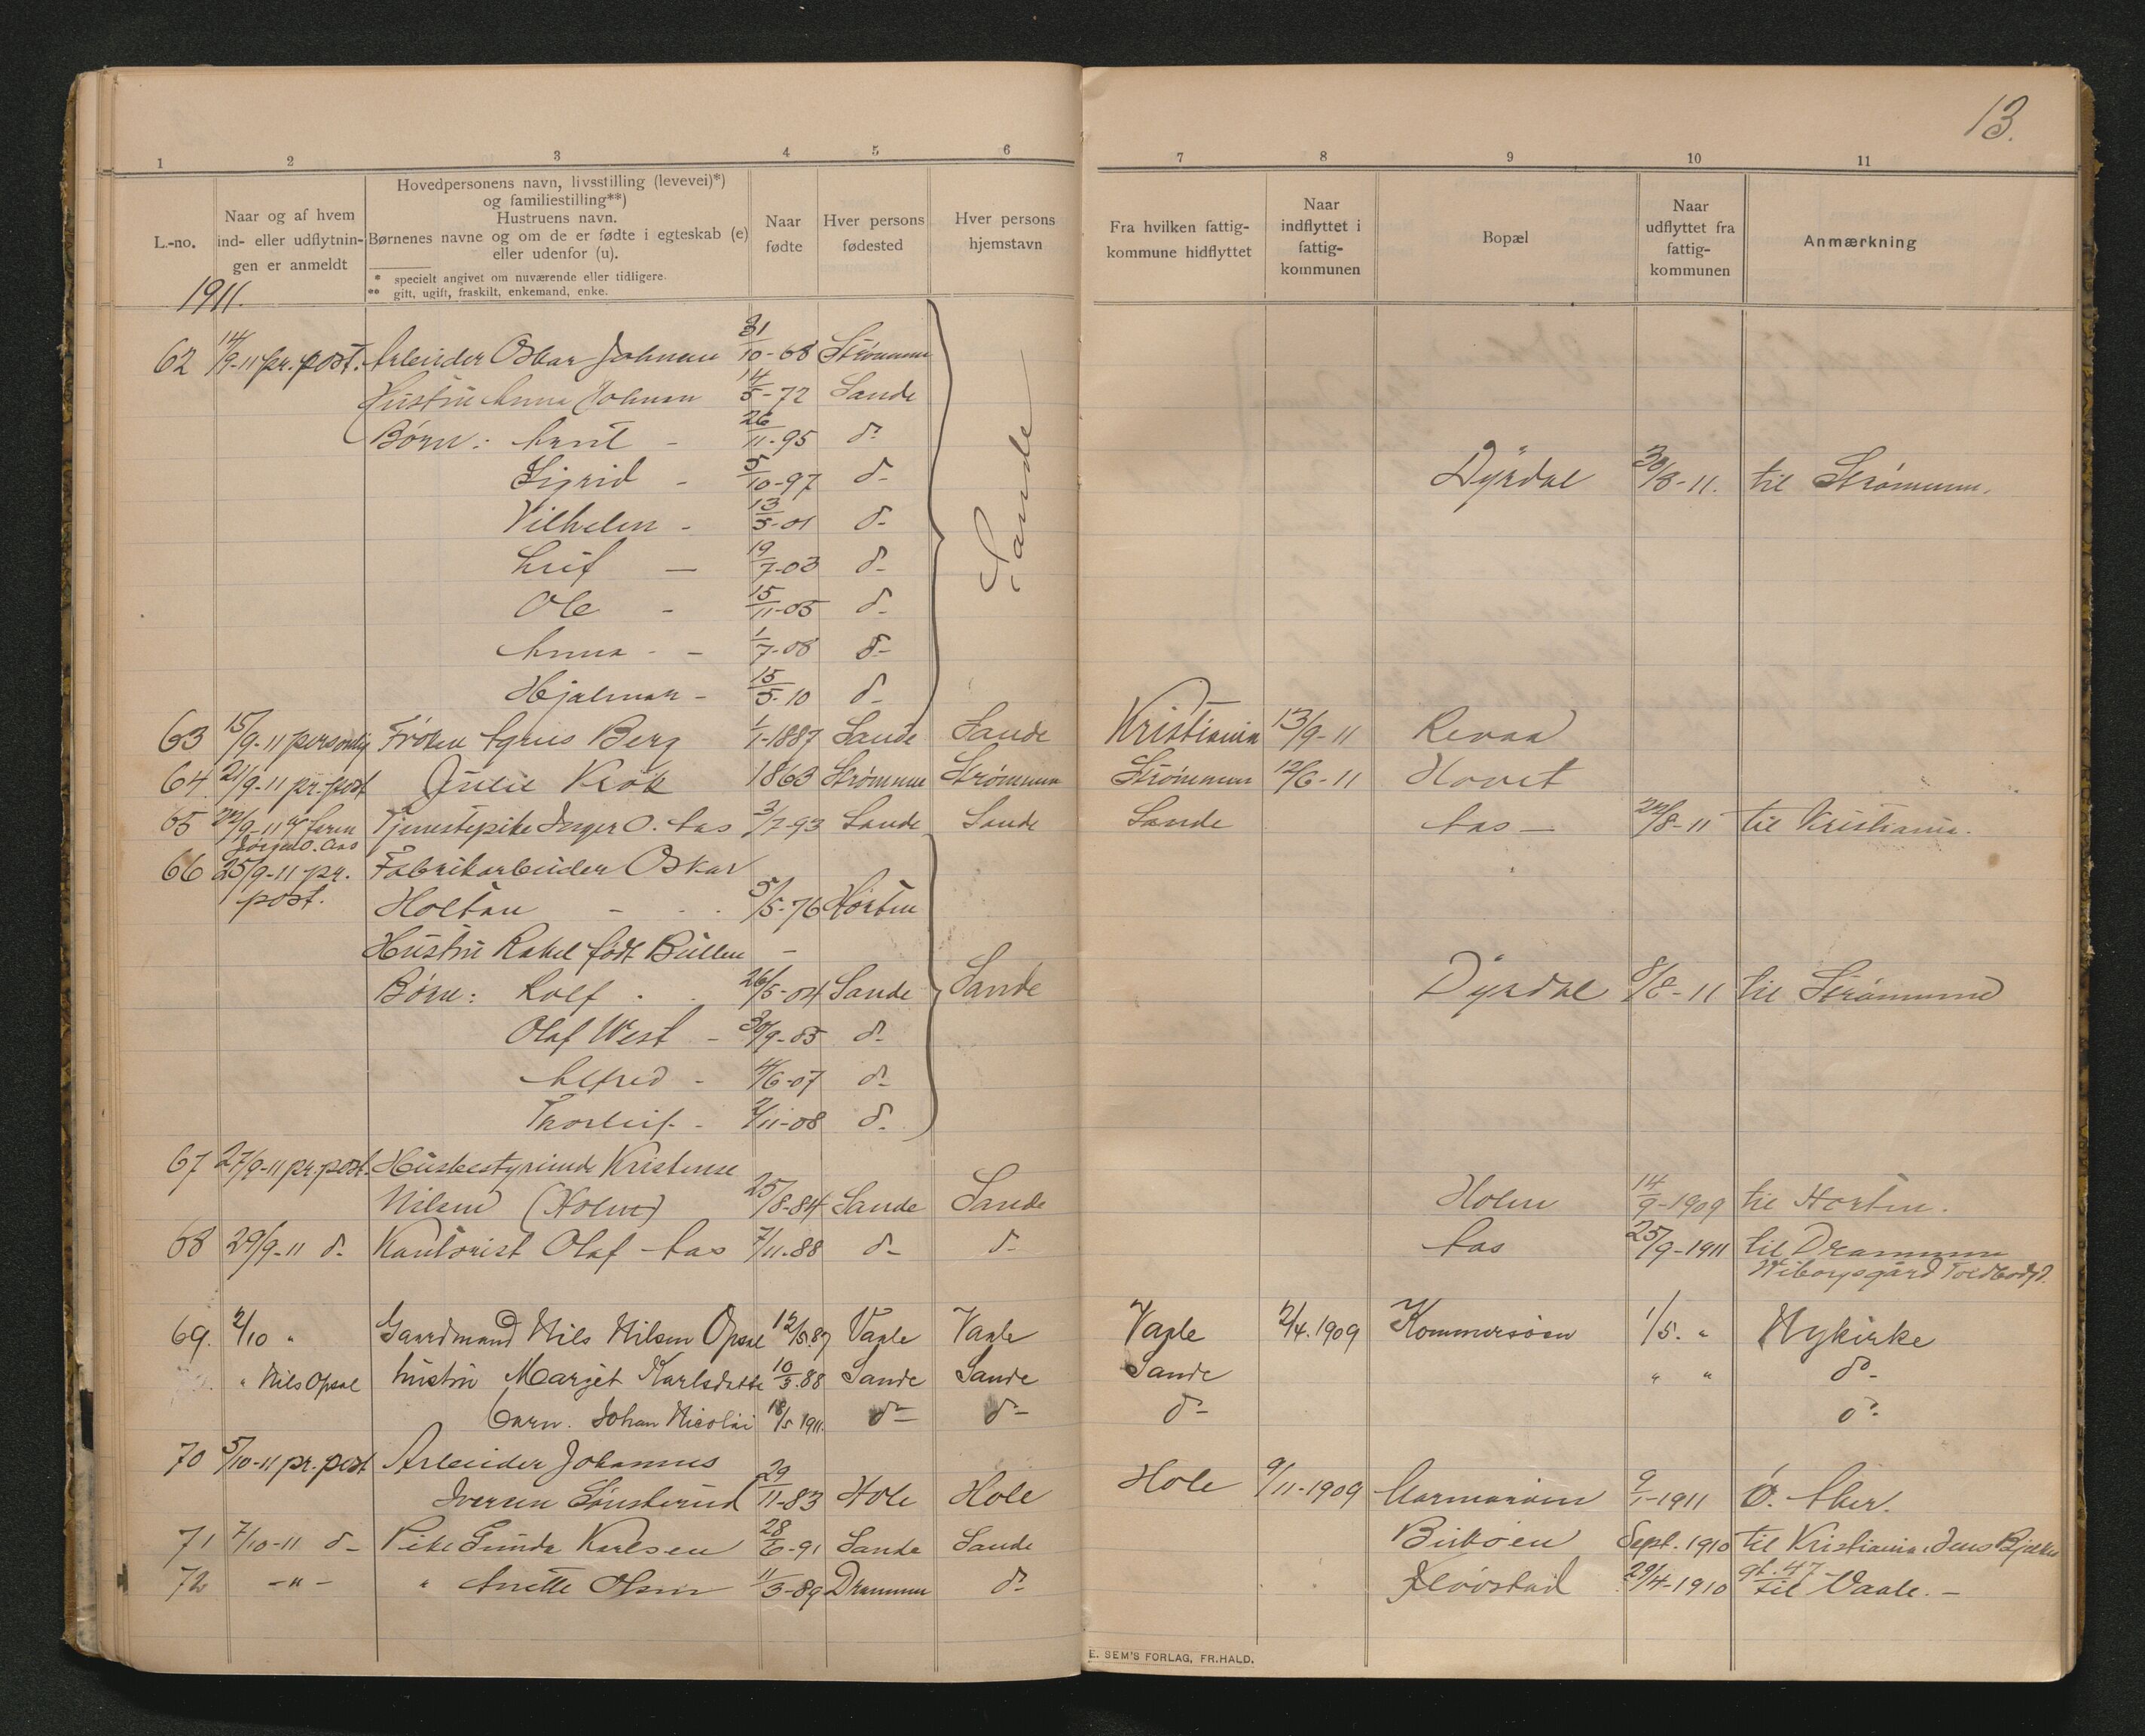 13.
1 2 3 4 5 6 7 8 9 10 11
L.-no.
Naar og af hvem
ind- eller udflytnin-
gen er anmeldt
Hovedpersonens navn, livsstilling (levevei)*)
og familiestilling**)
Hustruens navn.
Børnenes navne og om de er fødte i egteskab (e)
eller udenfor (u).
* specielt angivet om nuværende eller tidligere.
** gift, ugift, fraskilt, enkemand, enke.
Naar
fødte
Hver persons
fødested
Hver persons
hjemstavn
Fra hvilken fattig-
kommune hidflyttet
Naar
indflyttet i
fattig-
kommunen
Bopæl
Naar
udflyttet fra
fattig-
kommunen
Anmærkning
1911.
62 14/9-11 pr. post. Arbeider Oskar Johnsen 31/10-68 Strømmen
Hustru Anna Johnsen 14/5-72 Sande
Børn: Arnt - 26/11-95 do-
Sigrid - 5/10-97 do- Sande Dyrdal 30/8-11. til Strømmen.
Vilhelm - 13/5-01 do-
Leif — 19/7-03 do-
Ole - 15/11-05 do-
Anna - - 1/7-08 do-
Hjalmar - 15/5-10 do-
63 15/9-11 personlig Frøken Agnes Berg 1/1-1887 Sande Sande Kristiania 13/9-11 Revaa
64 21/9-11 pr. post Julie Krok 1863 Strømmen Strømmen Strømmen 12/6-11 Hovet
65 22/9-11 af faren Tjenestepike Inger O. Aas 3/7-93 Sande Sande Sande Aas — 24/8-11 til Kristiania.
Jørgen O. Aas
66 25/9-11 pr. Fabrikarbeider Oskar
post. Holtan - - . 5/5-76 Horten
Hustru Rakel født Bullen -
Børn: Rolf . . 26/5-04 Sande Sande Dyrdal 8/8-11 til Strømmen
Olaf West - 30/9-05 do-
Alfred - 4/6-07 do-
Thorleif - 2/11-08 do-
67 27/9-11 pr. post. Husbestyrinde Kristense
Nilsen (Holm) 25/8-84 Sande Sande Holm 14/9-1909 til Horten.
68 29/9-11 do- Kantorist Olaf Aas 7/11-88 do- do- Aas 25/9-1911 til Drammen
Wiborgsgård Toldbodgd.
69. 2/10 " Gaardmand Nils Nilsen Opsal 12/5.87 Vaale Vaale Vaale 2/4.1909 Kommersøen 1/5. " Nykirke
" Nils Opsal hustru Margit Karlsdatte 10/3.88 Sande Sande Sande " " do-
barn. Johan Nicolai 18/5 1911. do- do- do- do-
70 5/10-11 pr. post Arbeider Johannes
Iversen Sønsterud 29/11-83 Hole Hole Hole 9/11-1909 9/1-1911 Ø. Aker.
71 7/10-11 do- Pike Gunda Karlsen 28/6-91 Sande Sande Sept. 1910 til Kristiania. Jens Bjelkes
gt. 47 -
72 -"- " Anette Olsen 11/3-89 Drammen do- 29/4-1910 til Vaale. -
E. SEM'S FORLAG, FR.HALD.